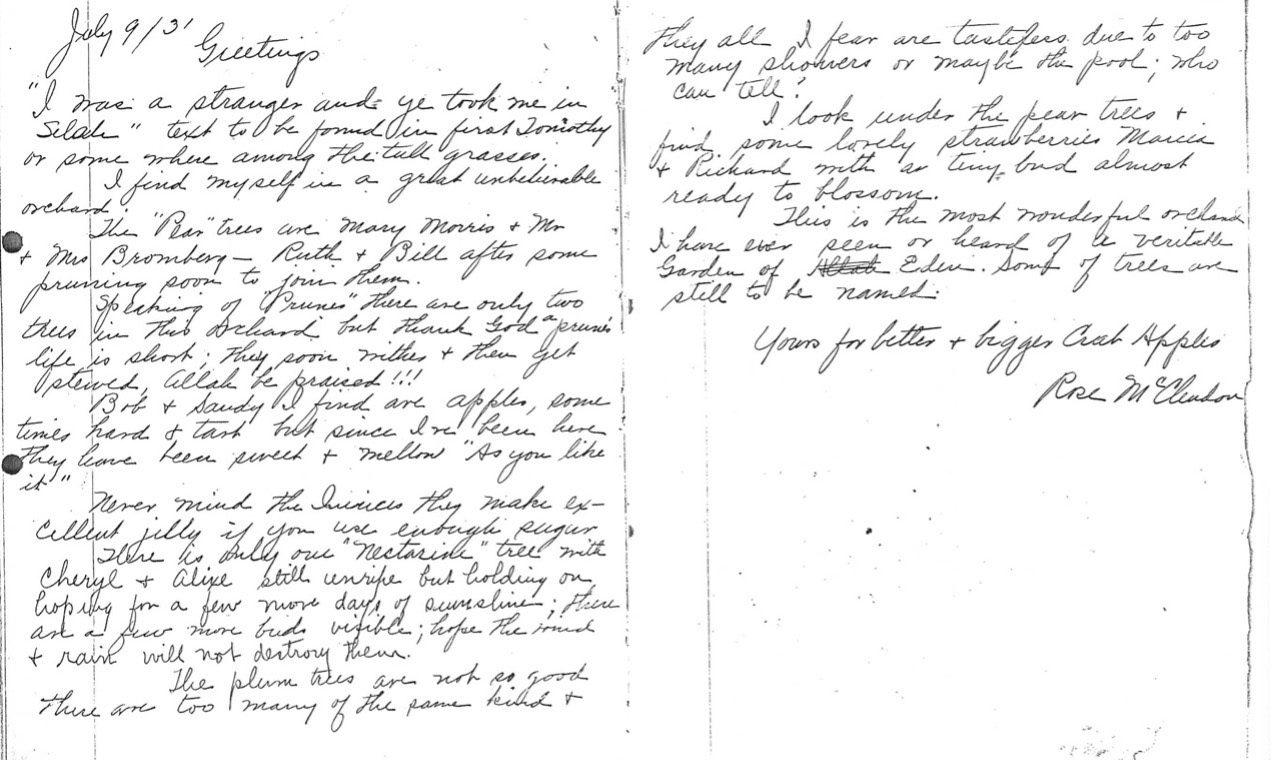 July 9/31
Greetings
"I was a stranger and ye took me in
Selah" text to be found in first Tomothy
or some where among the tall grasses.
I find myself in a great unbelievable
orchard.
The "Pear" trees are Mary Morris & Mr
& Mrs Bromberg — Ruth & Bill after some
pruning soon to join them.
Speaking of "Prunes" there are only two
trees in this Orchard but thank God a prune's
life is short; they soon wither & then get
stewed, Allah be praised!!!
Bob & Sandy I find are apples, some
times hard & tart but since I've been here
they have been sweet & mellow "As you like
it"
Never mind the Quinces they make ex-
cellent jelly if you use enough sugar
There is only one "Nectarine" tree with
Cheryl & Alixe still unripe but holding on
hoping for a few more days of sunshine; there
are a few more buds visible; hope the wind
& rain will not destroy them.
The plum trees are not so good
there are too many of the same kind &
they all I fear are tasteless due to too
many showers or maybe the pool; who
can tell?
I look under the pear trees &
find some lovely strawberries Marcia
& Richard with a tiny bud almost
ready to blossom.
This is the most wonderful orchard
I have ever seen or heard of a veritable
Garden of Eden. Some of trees are
still to be named.
Yours for better & bigger Crab Apples
Rose McClendon